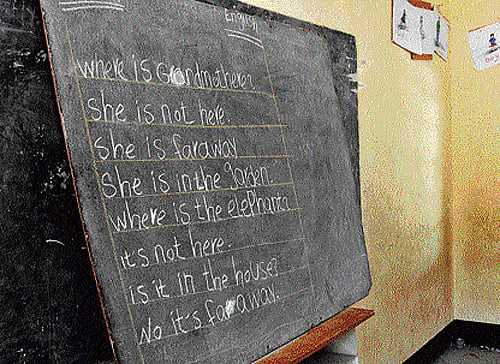 English
where is Grandmothere?
she is not here.
she is faraway
She is in the garden.
where is the elephant
it's not here.
is it in the house?
No it's far away.